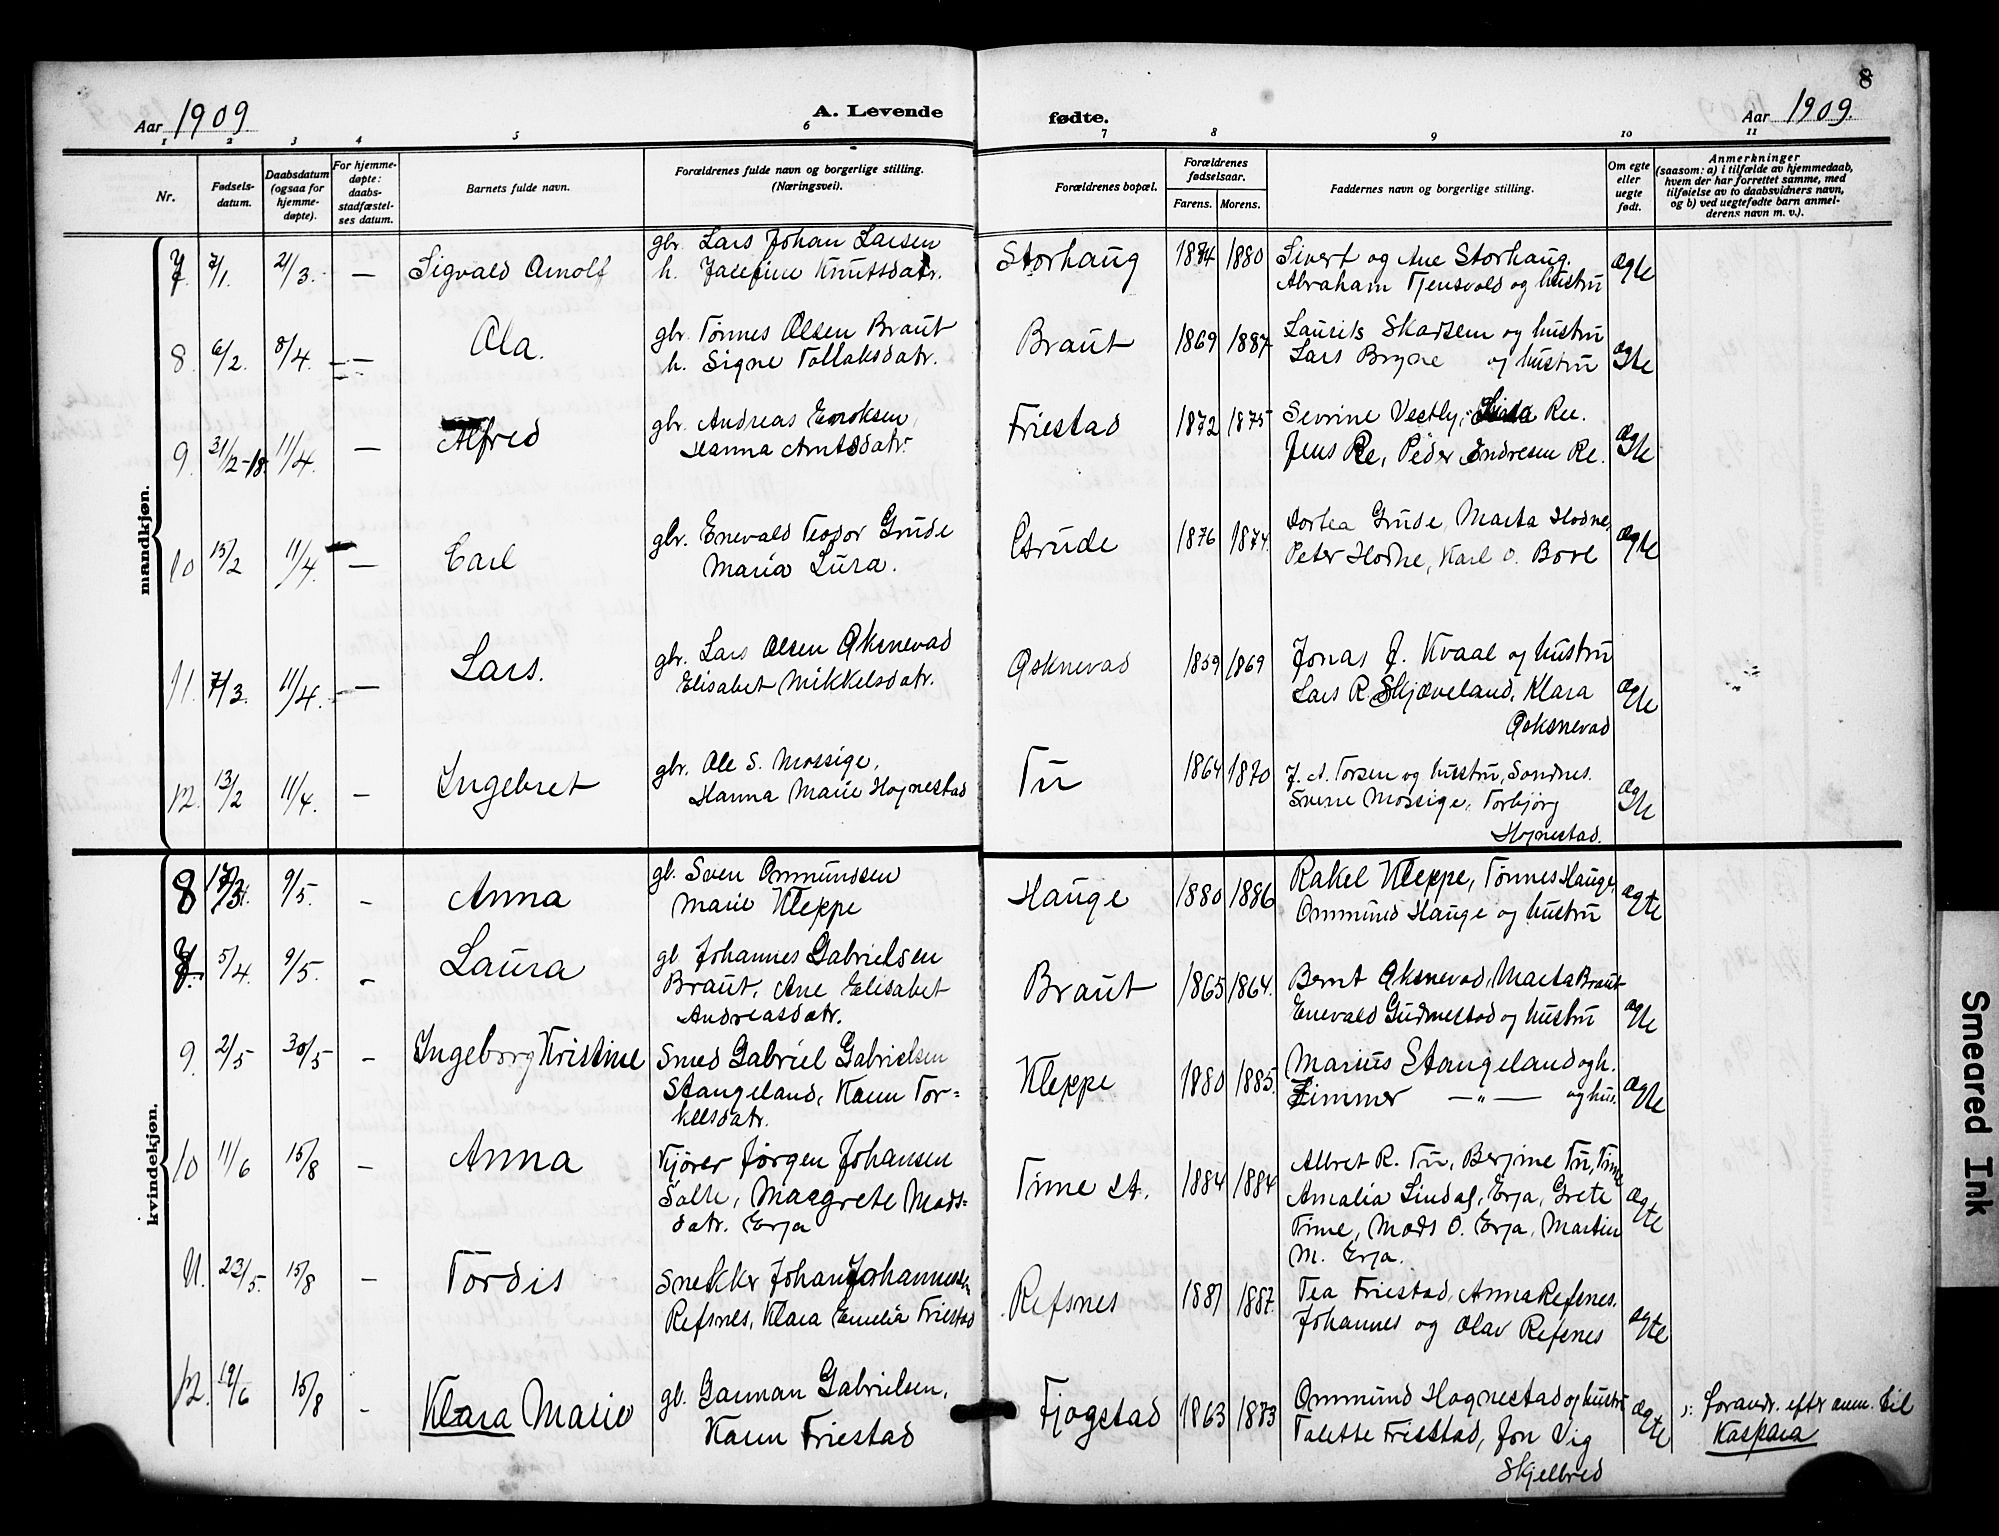 8
Aar 1909. A. Levende fødte. Aar 1909.
1 2 3 4 5 6 7 8 9 10 11
Nr. Fødsels-datum. Daabsdatum (ogsaa for hjemme-døpte). For hjemme-døpte: daabs-stadfæstel-ses datum. Barnets fulde navn. Forældrenes fulde navn og borgerlige stilling. (Næringsvei). Forældrenes bopæl. Forældrenes fødselsaar. Farens. Morens. Faddernes navn og borgerlige stilling. Om egte eller uegte født. Anmerkninger (saasom: a) i tilfælde av hjemmedaab, hvem der har forrettet samme, med tilføielse av to daabsvidners navn, og b) ved uegtefødte barn anmel-derens navn m. v.).
mandkjøn.
7. 7/1. 21/3. — Sigvald Arnolf gbr. Lars Johan Larsen Storhaug 1874 1880 Sivert og Ane Storhaug. ægte
h. Josefine Knutsdatr. Abraham Tjensvold og hustru
8. 6/2. 8/4. — Ola. gbr. Tønnes Olsen Braut Braut 1869 1887 Laurits Skadsem og hustru ægte
h. Signe Tollaksdatr. Lars Bryne og hustru
9. 31/12-18. 11/4. — Alfred gbr. Andreas Enoksen, Friestad 1872 1875 Sevrine Vestly, Ree. ægte
Hanna Arntsdatr. Jens Re, Peder Endresen Re.
10 15/2 11/4. — Carl gbr. Enevald Teodor Grude Grude 1876 1874. Dortea Grude, Marta Hodne, ægte
Maria Lura. Peter Hodne, Karl O. Bore
11. 7/3. 11/4. — Lars. gbr. Lars Olsen Øksnevad Øksnevad 1859 1869 Jonas J. Kvaal og hustru ægte
Elisabet Mikkelsdatr. Lars R. Skjæveland, Klara
Øksnevad
12. 13/2 11/4. — Ingebret gbr. Ole S. Mossige, Tu 1864 1870 J. A. Torsen og hustru, Sandnes. ægte
Hanna Marie Hognestad Mossige, Torbjørg
Hognestad.
kvindekjøn.
8 9/5. — Anna gb. Sven Ommundsen Hauge 1880 1886 Rakel Kleppe, Tønnes Hauge, ægte
Marie Kleppe Ommund Hauge og hustru
5/4. 9/5. — Laura gb. Johannes Gabrielsen Braut 1865 1864. Bernt Øksnevad, Marta Braut ægte
Braut, Ane Elisabet Enevald Gudmestad og hustru
Andreasdatr.
9. 2/5 30/5 — Ingeborg Kristine Smed Gabriel Gabrielsen Kleppe 1880 1885. Marius Stangeland og h. ægte
Stangeland, Karen Tor= Zimmer — „ — og hus.
kelsdatr.
10 11/6 15/8 — Anna Kjører Jørgen Johansen Time st. 1884 1884 Albret R. Tu, Berjine Tu, Time ægte
Salte, Margrete Mads= Amalia Lindal, Erga, Grete
datr. Erga Time, Mads O. Erga, Martin
M. Erga.
11. 23/5. 15/8 — Tordis Snekker Johan Johannessen Refsnes 1887 1887. Tea Friestad, Anna Refsnes. ægte
Refsnes, Klara Emelia Friestad Johannes og Olav Refsnes
12. 19/6 15/8 — Klara Marie gb. Gabrielsen, Fjogstad 1863 1883 Ommund Hognestad og hustru ægte forandr. efter anm. til
Karen Friestad Talette Friestad, Jon Vig Kaspara
Skjelbred
Smeared Ink